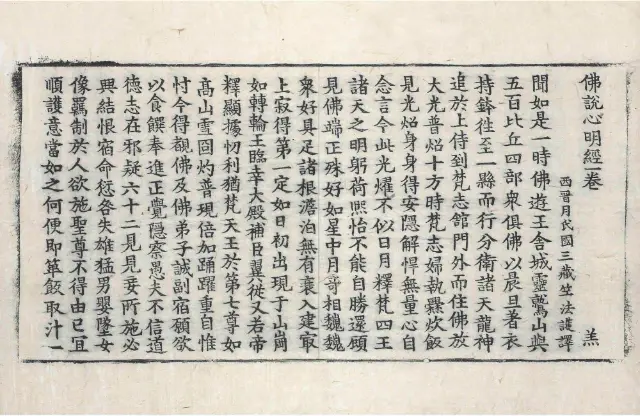 佛說心明經一卷
西晉月氏國三藏竺法護譯 羔
聞如是一時佛遊王舍城靈鷲山與
五百比丘四部衆俱佛以晨旦著衣
持鉢往至一縣而行分衛諸天龍神
追於上侍到梵志館門外而住佛放
大光普炤十方時梵志婦執爨炊飯
見光炤身身得安隱解懌無量心自
念言今此光燿不似日月釋梵四王
諸天之明躬荷熙怡不能自勝還顧
見佛端正殊好如星中月奇相魏魏
衆好具足諸根澹泊無有衰入建冣
上寂得第一定如日初出現于山崗
如轉輪王臨幸大殿補臣翼從又若帝
釋顯據忉利猶梵天王於第七尊如
高山雪回灼善現倍加踊躍重自惟
忖今得覩佛及佛弟子誠副宿願欲
以食饌奉進正覺隱察愚夫不信道
德志在邪疑六十二見見妾所施必
興結恨宿命愆咎失雄猛男嬰墮女
像羈制於人欲施聖尊不得由已宜
順護意當如之何便即箄飯取汁一